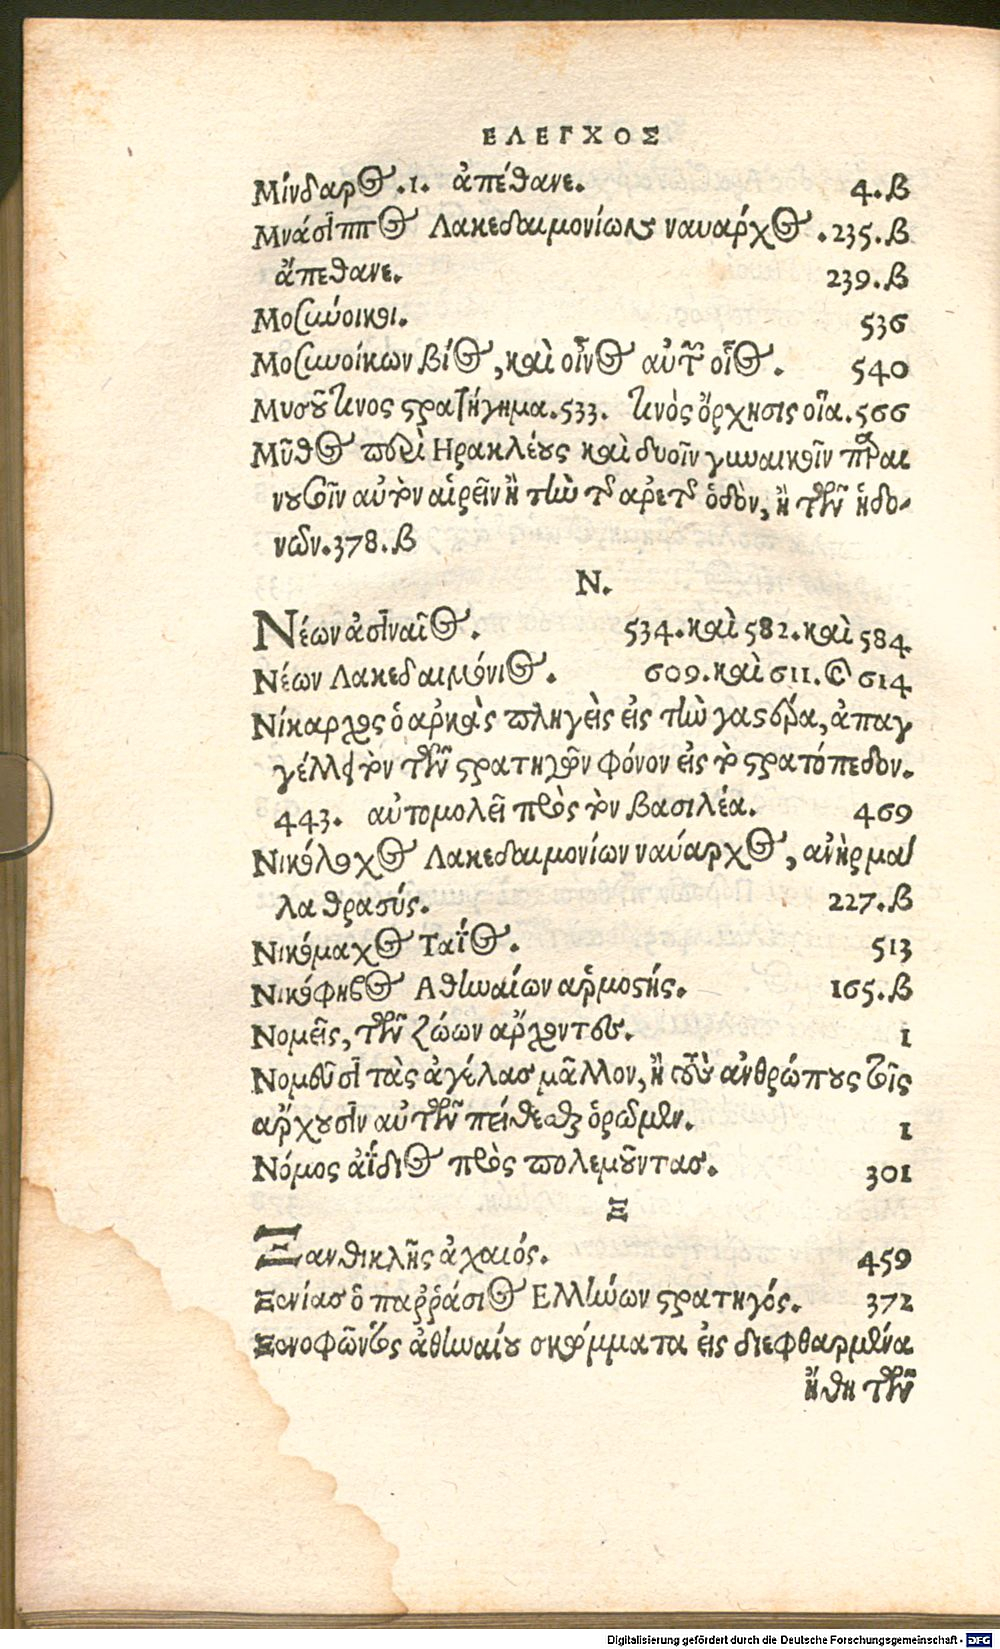 ΕΛΕΓΧΟΣ
Μίνδαρος .1. ἀπέθανε. 4.β
Μνάσιππος Λακεδαιμονίων ναυάρχος .235.β
ἄπεθανε. 239.β
Μοσύνοικοι. 536
Μοσυνοίκων βίος, καὶ οἶνος αὐτῶν οἷος. 540
Μυσοῦ τινος στρατήγημα.533. τινὸς ὄρχησις οἵα.566
Μῦθος περὶ Ηρακλέους καὶ δυοῖν γυναικοῖν παραι
νουσῶν αὐτὸν αἱρεῖν ἢ τὴν τῆς ἀρετῆς ὁδὸν, ἢ τῶν ἡδο-
νῶν.378.β
Ν.
Νέων ἀσιναῖος. 534.καὶ 582.καὶ 584.
Νέων Λακεδαιμόνιος. 609.καὶ 611. & 614
Νίκαρχος ὁ ἀρκὰς πληγεὶς εἰς τὴν γαστέρα, ἀπαγ
γέλλει τὸν τῶν στρατηγῶν φόνον εἰς τὸ στρατόπεδον.
443. αὐτομολεῖ πρὸς τὸν βασιλέα. 469
Νικόλοχος Λακεδαιμονίων ναύαρχος, ἀνὴρ μάλ
λα θρασύς. 227.β
Νικόμαχος Ταΐος. 513
Νικόφημος Αθηναίων ἁρμοστής. 165.β
Νομεῖς, τῶν ζώων ἄρχοντες. 1
Νομεῦσι τὰς ἀγέλας μᾶλλον, ἢ τοὺς ἀνθρώπους τοῖς
ἄρχουσιν αὐτῶν πείθεσθαι ὁρῶμεν. 1
Νόμος ἀΐδιος πρὸς πολεμοῦντας. 301
Ξ
Ξανθικλῆς ἀχαιός. 459
Ξενίας ὁ παῤῥάσιος Ελλήνων στρατηγός. 372
Ξενοφῶντος ἀθηναίου σκόμματα εἰς διεφθαρμένα
ἤθη τῶν
Digitalisierung gefördert durch die Deutsche Forschungsgemeinschaft - DFG